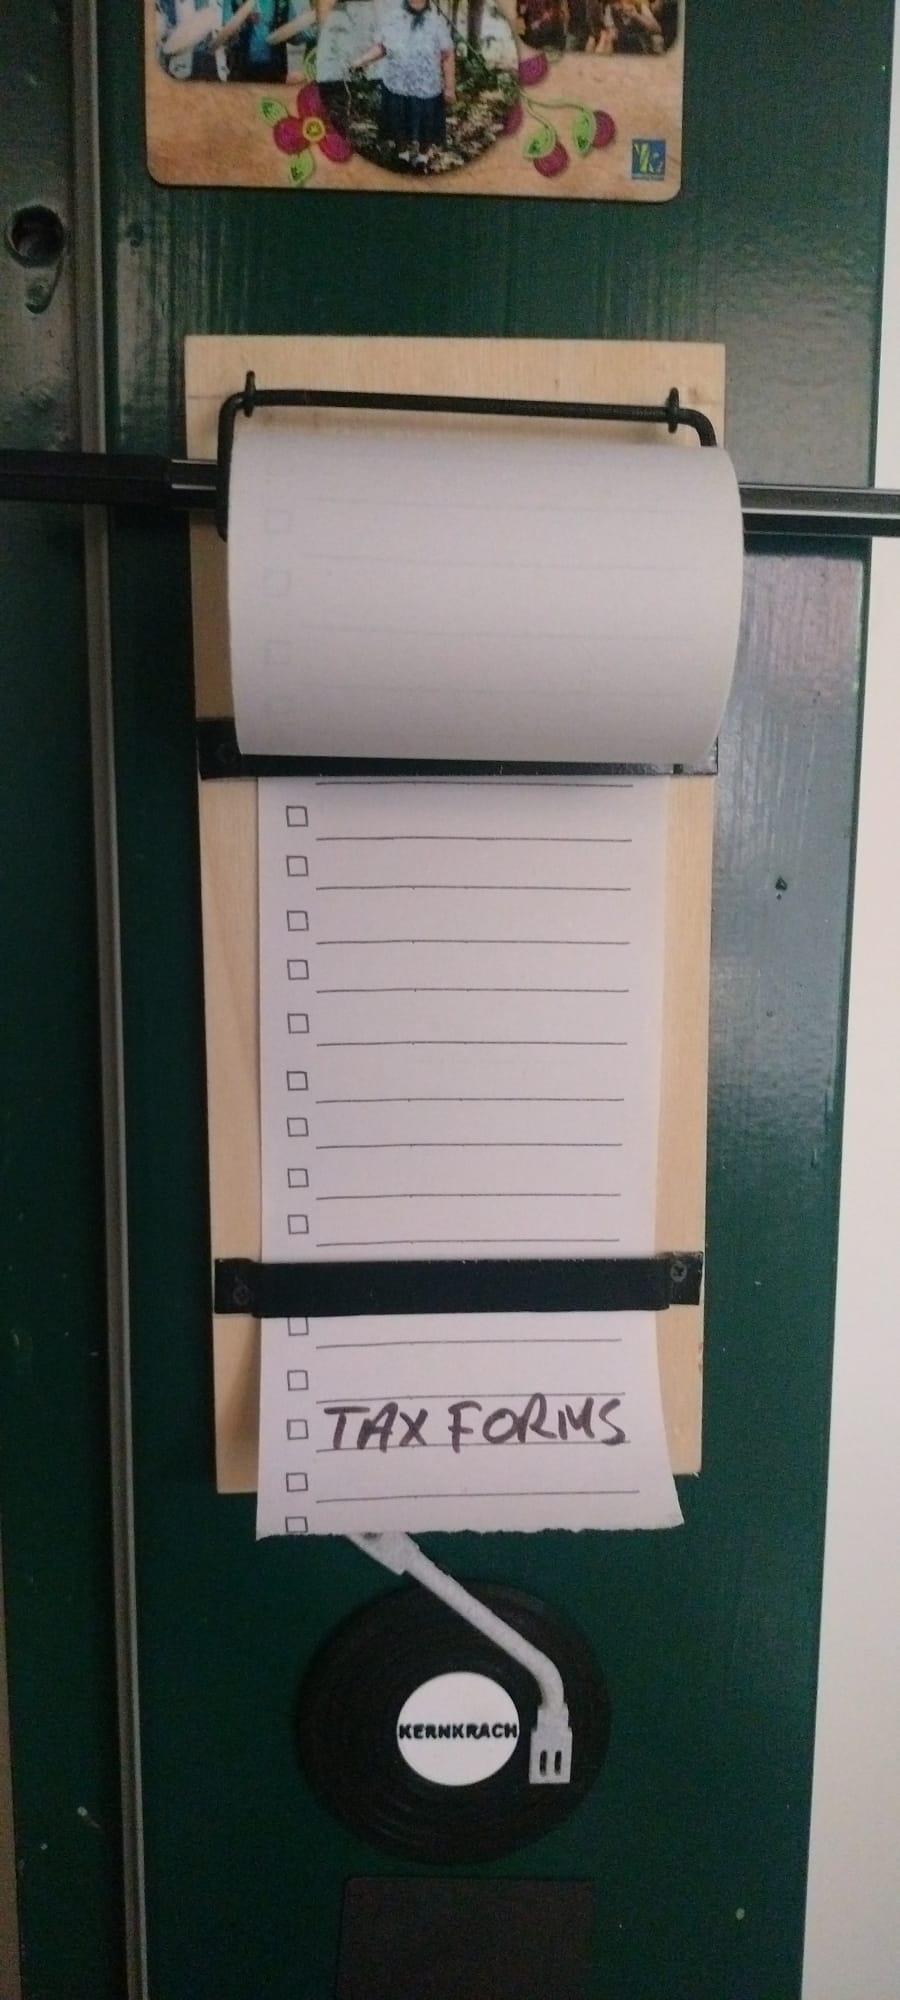 TAX FORMS
KERNKRACH